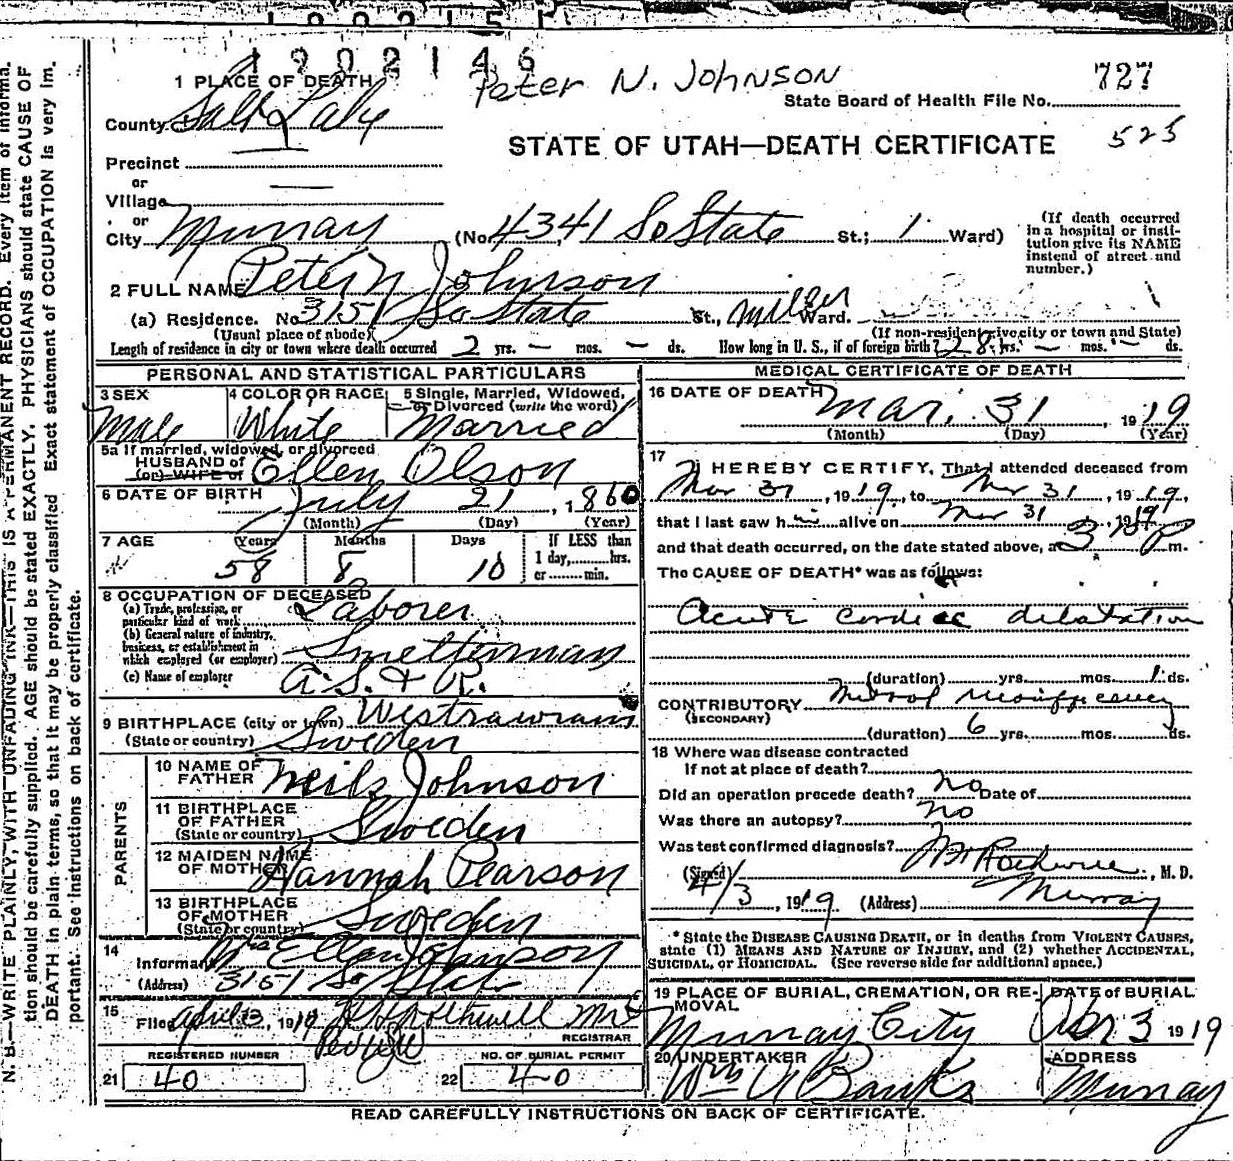 1902146
Peter N. Johnson
727
1 PLACE OF DEATH
State Board of Health File No.
County Salt Lake
STATE OF UTAH—DEATH CERTIFICATE 525
Precinct
or
Village
or
City Murray (No. 4341 So State St.; 1 Ward)
(If death occurred in a hospital or institution give its NAME instead of street and number.)
2 FULL NAME Peter N Johnson
(a) Residence. No. 3151 So State St., Miller Ward.
(Usual place of abode) (If non-resident give city or town and State)
Length of residence in city or town where death occurred 2 yrs. — mos. — ds. How long in U. S., if of foreign birth? 28 yrs. — mos. — ds.
PERSONAL AND STATISTICAL PARTICULARS
3 SEX Male
4 COLOR OR RACE White
5 Single, Married, Widowed, or Divorced (write the word) Married
5a If married, widowed, or divorced
HUSBAND of
(or) WIFE of Ellen Olson
6 DATE OF BIRTH July 21, 1860
(Month) (Day) (Year)
7 AGE Years 58 Months 8 Days 10 If LESS than 1 day, hrs. or min.
8 OCCUPATION OF DECEASED
(a) Trade, profession, or particular kind of work Laborer
(b) General nature of industry, business, or establishment in which employed (or employer) Smelterman
(c) Name of employer A. S. & R.
9 BIRTHPLACE (city or town)
(State or country) Sweden
PARENTS
10 NAME OF FATHER Neils Johnson
11 BIRTHPLACE OF FATHER (State or country) Sweden
12 MAIDEN NAME OF MOTHER Hannah Pearson
13 BIRTHPLACE OF MOTHER (State or country) Sweden
14 Informant Mrs Ellen Johnson
(Address) 3151 So State
15 Filed April 3, 1919
REGISTRAR
REGISTERED NUMBER
21 40
NO. OF BURIAL PERMIT
22 40
MEDICAL CERTIFICATE OF DEATH
16 DATE OF DEATH Mar. 31 1919
(Month) (Day) (Year)
17
I HEREBY CERTIFY, That I attended deceased from
Mar 31, 1919, to Mar 31, 1919,
that I last saw him alive on Mar 31, 1919
and that death occurred, on the date stated above, at 3 P m.
The CAUSE OF DEATH* was as follows:
Acute cardiac dilatation
(duration) yrs. mos. 1 ds.
CONTRIBUTORY Mitral insufficiency
(SECONDARY)
(duration) 6 yrs. mos. ds.
18 Where was disease contracted
If not at place of death?
Did an operation precede death? No Date of
Was there an autopsy? No
Was test confirmed diagnosis?
(Signed) , M. D.
4/3, 1919 (Address) Murray
* State the DISEASE CAUSING DEATH, or in deaths from VIOLENT CAUSES,
state (1) MEANS AND NATURE OF INJURY, and (2) whether ACCIDENTAL,
SUICIDAL, or HOMICIDAL. (See reverse side for additional space.)
19 PLACE OF BURIAL, CREMATION, OR REMOVAL Murray City
DATE OF BURIAL Apr 3 1919
20 UNDERTAKER Wm A Banks
ADDRESS Murray
READ CAREFULLY INSTRUCTIONS ON BACK OF CERTIFICATE.
N. B.—WRITE PLAINLY, WITH UNFADING INK—THIS IS A PERMANENT RECORD. Every item of informa-
tion should be carefully supplied. AGE should be stated EXACTLY. PHYSICIANS should state CAUSE OF
DEATH in plain terms, so that it may be properly classified. Exact statement of OCCUPATION is very im-
portant. See instructions on back of certificate.